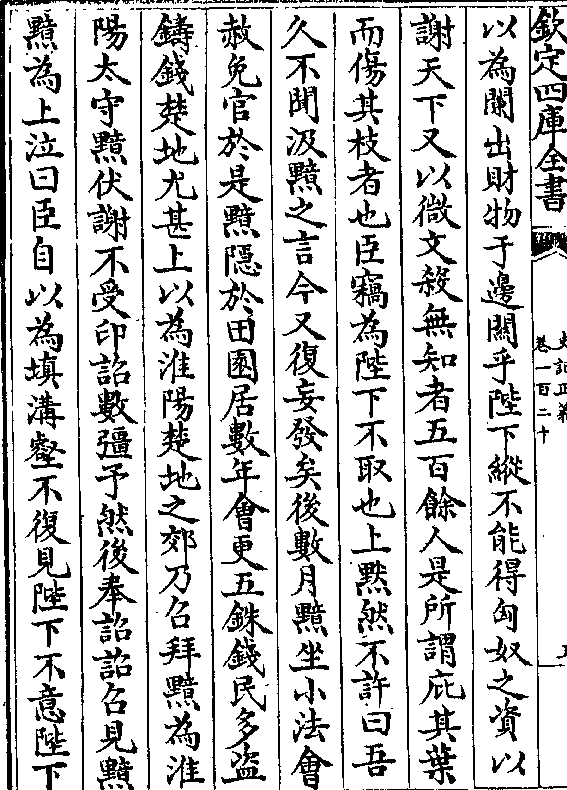 欽定四庫全書
史記正義
卷一百二十
以為闌出財物于邊關乎陛下縱不能得匈奴之資以
謝天下又以微文殺無知者五百餘人是所謂庇其葉
而傷其枝者也臣竊為陛下不取也上黙然不許曰吾
久不聞汲黯之言今又復妄發矣後數月黯坐小法會
赦免官於是黯隱於田園居數年會更五銖錢民多盜
鑄錢楚地尤甚上以為淮陽楚地之郊乃召拜黯為淮
陽太守黯伏謝不受印詔數彊予然後奉詔詔召見黯
黯為上泣曰臣自以為填溝壑不復見陛下不意陛下